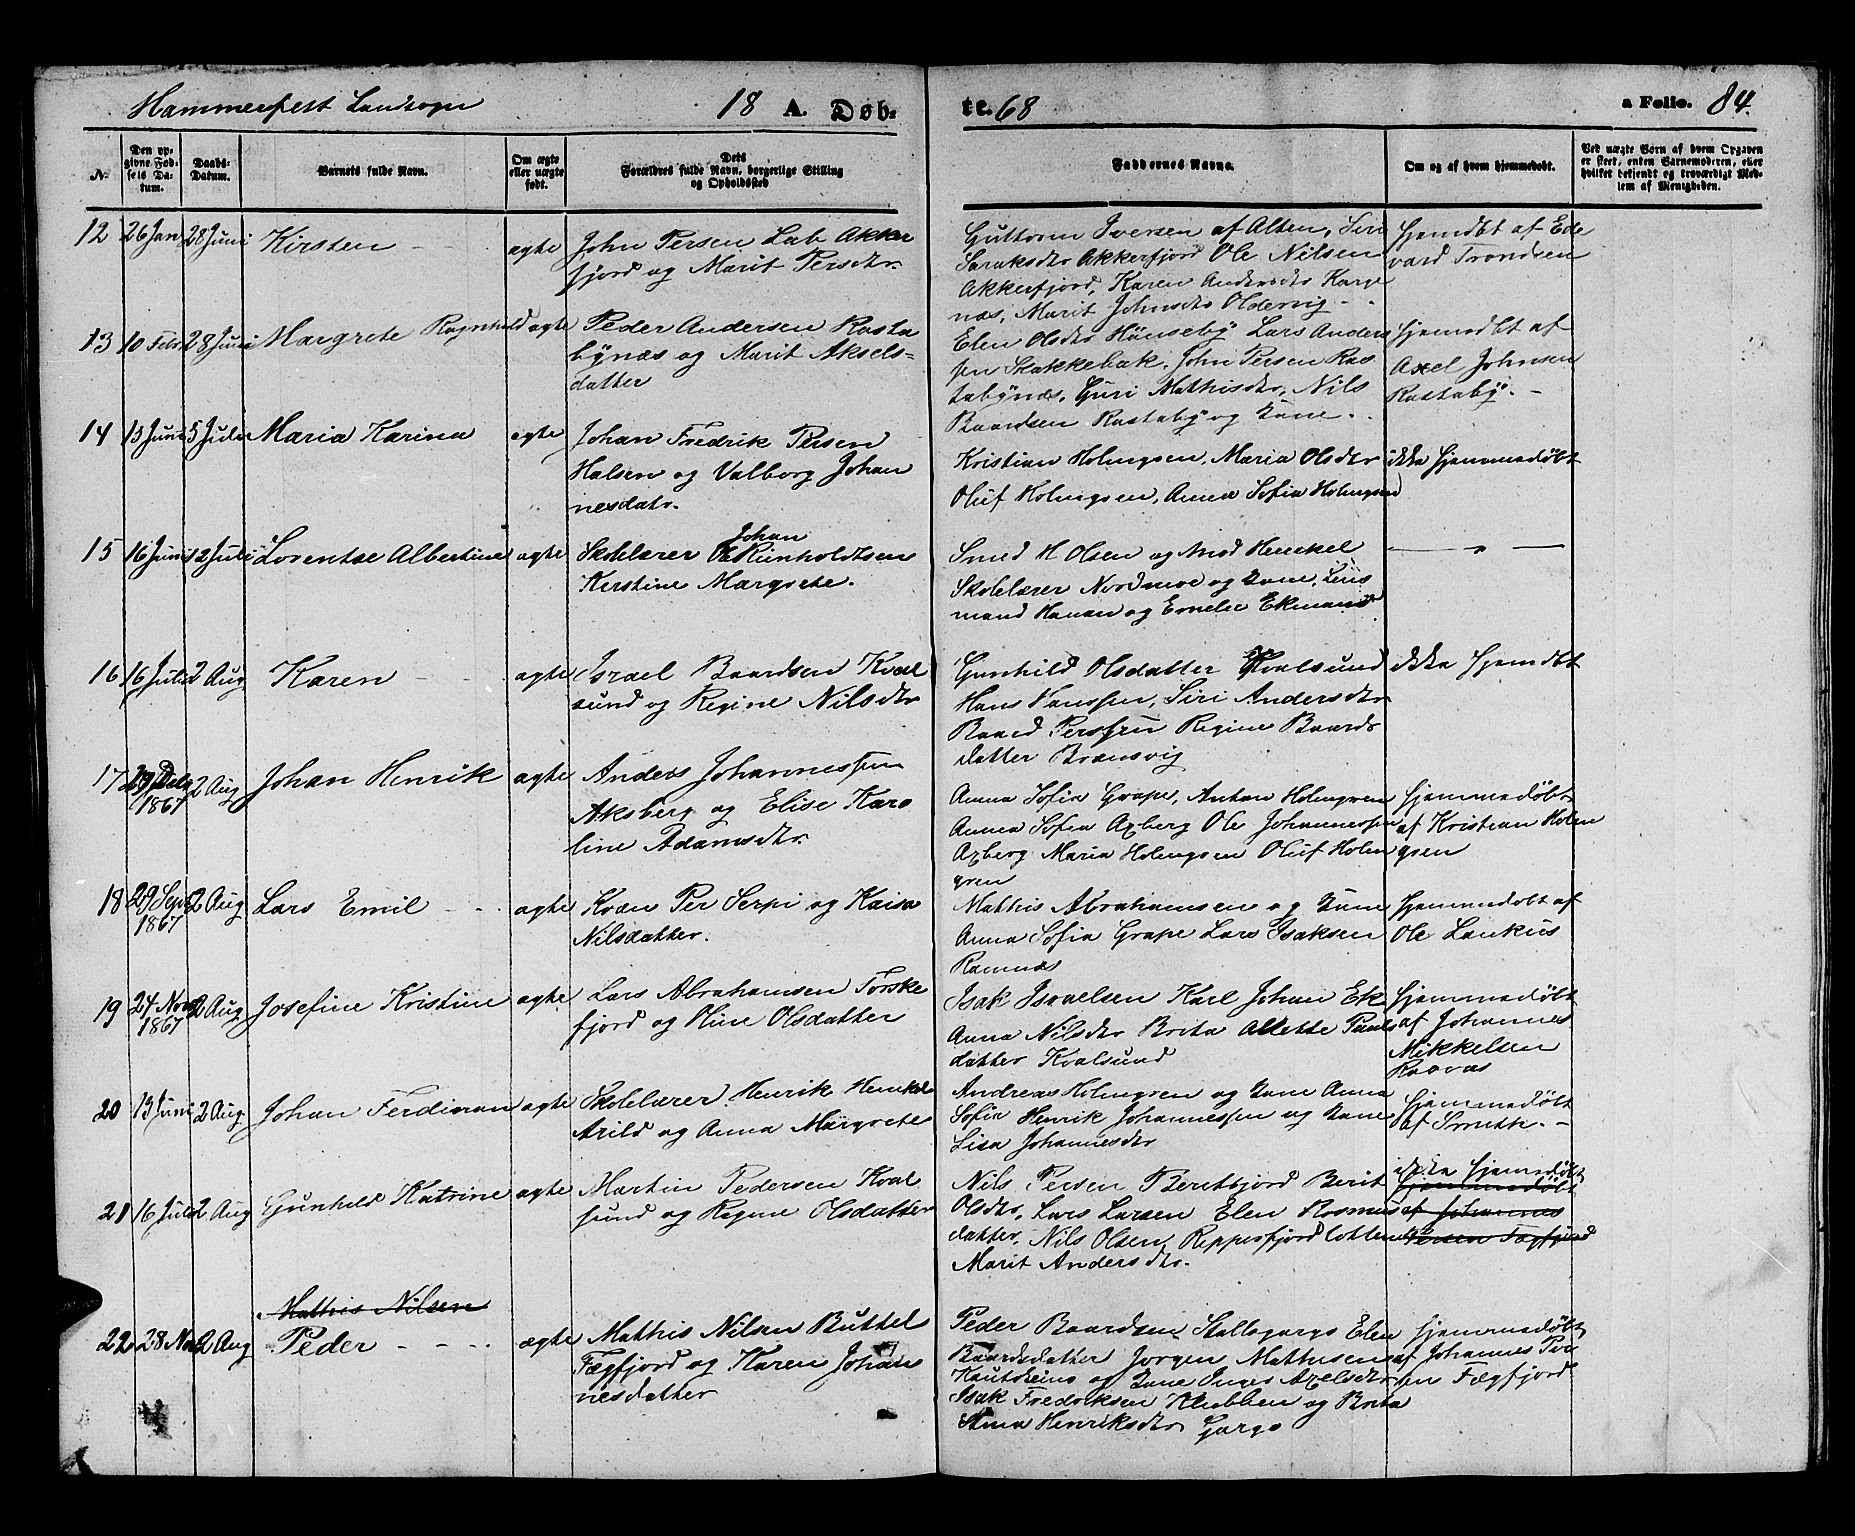 Hammerfest Landsogn 18 A. Døb- te. 68 a Folio. 84.
No. Den opgivne Fødsels Datum. Daabs-Datum. Barnets fulde Navn. Om ægte eller uægte født. Dets Forældres fulde Navn, borgerlige Stilling og Opholdssted Faddernes Navne. Om og af hvem hjemmedøbt. Ved uægte Børn af hvem Opgaven er skeet, enten Barnemoderen, eller hvilket bekjendt og troværdigt Medlem af Menigheden.
12 26 Jan 28 Juni Kirsten ægte
John Persen Lab Akker
fjord og Marit Persdtr.
Guttorm Iversen af Alten, Siri
Akkerfjord Ole Nilsen
Akkerfjord, Karen Andersdtr Karge
næs, Marit Johnsdtr Oldervig
Hjemdbt af Ed
vard Trondsen
13 10 Febr 28 Juni Margrete Ragnhild ægte
Peder Andersen Rasta
bynæs og Marit Aksels-
datter
Elen Olsdtr Hønseby Lars Anders
sen Skakkebak. John Persen Ras
tabynæs, Guri Mathisdtr, Nils
Baardsen Rastaby og Kone.
Hjemdbt af
Axel Johnsen
Rastaby. -
14 13 Juni 5 Juli Maria Karina ægte
Johan Fredrik Persen
Halsen og Valborg Johan
nesdatr.
Kristian Holmgsen, Maria Olsdtr
Oluf Holmgsen, Anna Sofia Holmgsen
ikke hjemmedøbt
15 16 Juni 12 Juli Lorentse Albertine ægte
Johan
Skolelærer Reinholdtsen
Kirstine Margrete.
Smed H Olsen og Mad Henckel
Skolelærer Nordmoe og Kone, Lens
mand Hanan og Emelie Ekmand
— " —
16 16 Juli 2 Aug Karen ægte
Israel Baardsen Kval
sund og Regine Nilsdtr
Gunhild Olsdatter Kvalsund
Hans Hanssen, Siri Andersdtr
Baard Perssen Regine Baards
datter Brænsvig
ikke Hjemdbt
17 1867 2 Aug Johan Henrik ægte
Anders Johannessen
Aksberg og Elise Karo
line Adamsdtr.
Anna Sofia Grape, Anton Holmgren
Anna Sofia Axberg Ole Johannessen
Axberg Maria Holmgsen Oluf Holm
gren
Hjemmedøbt
af Kristian Holm
gsen
18 29 Sept 1867 2 Aug Lars Emil ægte
Kvæn Per Serpi og Kaisa
Nilsdatter.
Mathis Abrahamsen og Kone
Anna Sofia Grape Lars Isaksen
Ramnæs
Hjemmedøbt af
Ole Lankus
19 24 Nov 1867 2 Aug Josefine Kristine ægte
Lars Abrahamsen Torske
fjord og Oline Olsdatter
Isak Israelsen Karl Johan Ek
Anna Nilsdtr Brita Allette Pauls
datter Kvalsund
Hjemmedøbt
af Johannes
Mikkelsen
20 13 Juni 2 Aug Johan Ferdinan ægte
Skolelærer Henrik Henckel
Arild og Anna Margrete
Andreas Holmgren og Kone Anna
Sofia Henrik Johannessen og Kone
Lisa Johannesdtr
Hjemmedøbt
af Smith. -
21 16 Juli 2 Aug Gunhild Katrine ægte
Martin Pedersen Kval
sund og Regine Olsdatter
Nils Persen Beretsfjord Berit
Olsdtr, Lars Larsen Elen Rasmus
datter, Nils Olsen Repparfjord
Marit Andersdtr.
ikke Hjemdøbt
Hjemmedøbt
af Johannes
Persen Fægfjord
Mathis Nilsen
22 28 Nov 2 Aug Peder ægte
Mathis Nilsen Buttel
Fægfjord og Karen Johan
nesdatter
Peder Baardsen Stallogargo Elen
Baardsdatter Jørgen Mathisen
Kautokeino og Kone Inger Axelsdtr
Isak Fredriksen Klubben og Brita
Anna Henriksdtr Gargo
Hjemmedøbt
af Johannes
Fægfjord